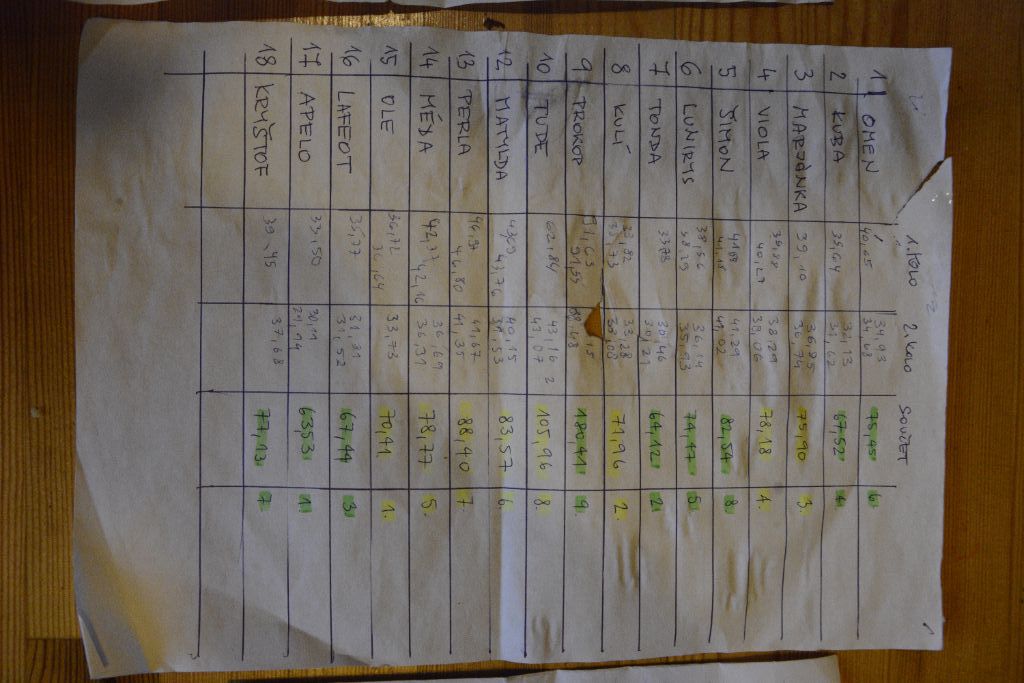 1. KOLO 2. KOLO SOUČET
1 OMEN 40,65 34,93 75,45 6.
34,68
2 KUBA 35,64 67,52 4.
3 MAŘÁNKA 39,10 36,85 75,90 3.
36,74
4 VIOLA 39,88 38,29 78,18 4.
40,27 38,06
5 ŠIMON 41,29 82,54 8.
41,18 41,02
6 LUNIRYS 38,56 36,14 74,47 5.
35,93
7 TONDA 33,78 30,46 64,12 2.
30,21
8 KULÍ 33,28 71,96 2.
9 PROKOP 51,63 180,41 9.
51,55
10 TUDE 62,84 43,16 2 105,96 8.
43,07
12 MATYLDA 43,76 40,15 83,57 6.
39,53
13 PERLA 46,80 41,67 88,40 7.
41,35
14 MÉĎA 42,37 42,16 36,69 78,77 5.
36,31
15 OLE 36,72 36,64 33,73 70,41 1.
16 LAFEOT 35,77 31,81 67,44 3.
31,52
17 APELO 33,50 30,11 63,53 1.
29,94
18 KRYŠTOF 39,45 37,68 77,13 7.